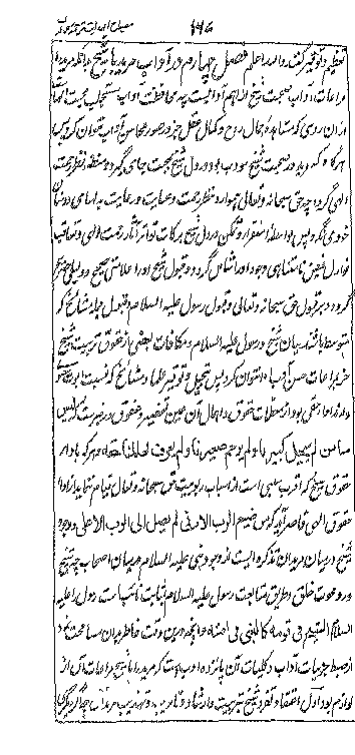 ۱۴۶
تعظیم و توقیر کنند والله اعلم فصل چهارم در آداب مرید با شیخ بدانکه مرید را
مراعات آداب صحبت شیخ از اهم آداب است چه محافظت آداب مستجلب محبت است
از آن روی که مشاهده جمال روح و کمال عقل جز در صور محاسن آداب نتوان کرد پس
هرگاه که مرید در صحبت شیخ مؤدب بود در دل شیخ بمحبت جای گیرد و منظور نظر رحمت
الهی گردد چه حق سبحانه و تعالی همواره نظر رحمت و عنایت و رعایت به دلهای دوستان
خود می‌گرد پس بواسطه استقرار و تمکن در دل شیخ برکات تواتر آثار رحمت الهی و تعاقب
توارد فیض نامتناهی وجود او را شامل گردد و قبول شیخ او را علامتی صحیح و دلیلی صریح
گردد بر قبول حق سبحانه و تعالی و قبول رسول علیه السلام و قبول جمله مشائخ که
متوسط باشند میان شیخ و رسول علیه السلام و مکافات بعضی از حقوق تربیت شیخ
جز بمراعات حسن آداب نتوان کرد پس تبجیل و توقیر علما و مشائخ که نسبت ابوت معنوی
دارند ادای حقی بود از معظمات حقوق و اهمال آن عین تقصیر و عقوق در خبر است که لیس
منا من لم یبجل کبیرنا و لم یرحم صغیرنا و لم یعرف لعالمنا حقه و هر که بادای
حقوق شیخ که اقرب سببی است از اسباب ربوبیت حق سبحانه و تعالی قیام ننماید از ادای
حقوق الهی قاصر آید که من ضیع الرب الادنی لم یصل الی الرب الاعلی و وجود
شیخ در میان مریدان تذکره ایست از وجود نبی علیه السلام در میان اصحاب چه شیخ
در دعوت خلق بطریق متابعت رسول علیه السلام بمثابت نائب است رسول را علیه
السلام الشیخ فی قومه کالنبی فی امته و آنچه درین وقت خاطر بدان مسامحت نمود
از ضبط جزئیات آداب و کلیات آن پانزده ادب است که مرید را با شیخ مراعات آن از
لوازم بود اول اعتقاد تفرد شیخ بتربیت و ارشاد و تادیب و تهذیب مریدان چه اگر دیگری